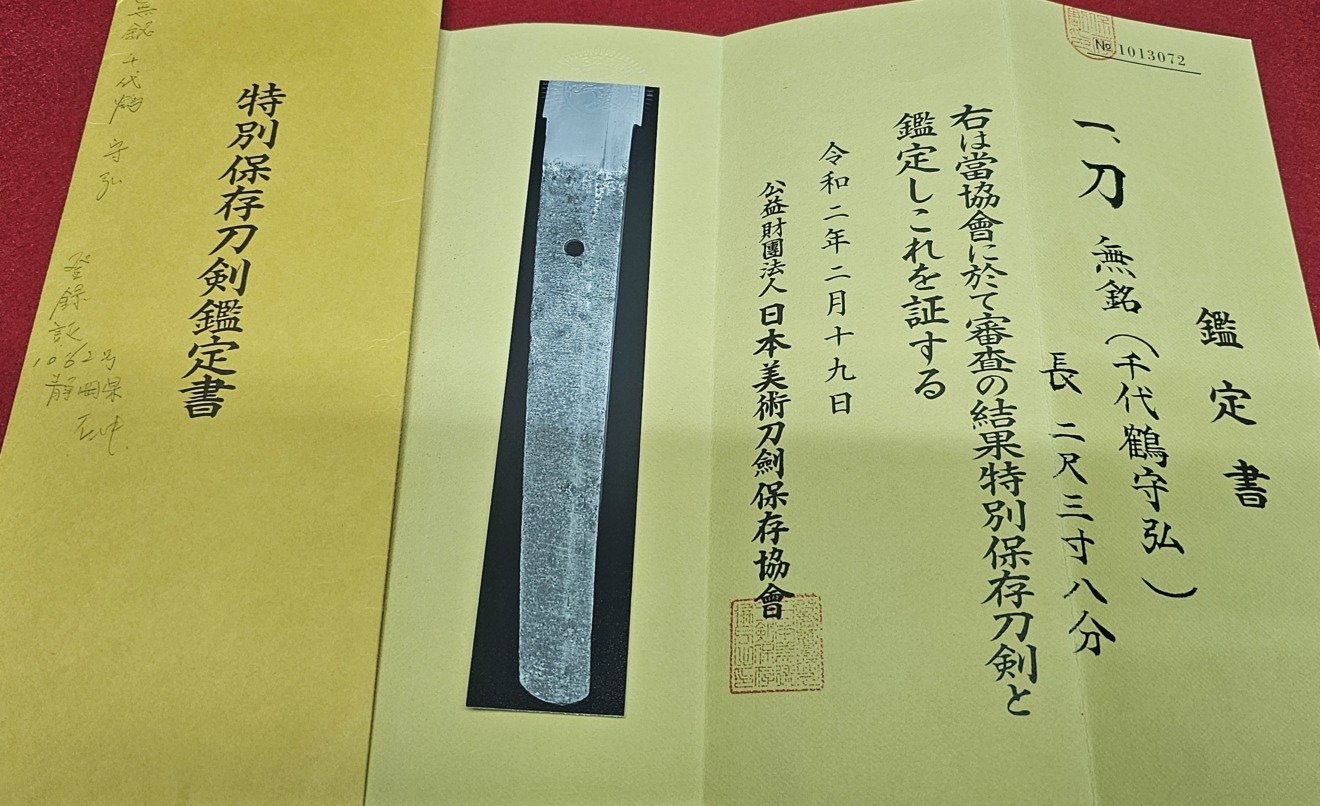 鑑定書
№1013072
一、刀 無銘(千代鶴守弘)
長 二尺三寸八分
右は當協會に於て審査の結果特別保存刀剣と
鑑定しこれを証する
令和二年二月十九日
公益財團法人 日本美術刀劍保存協會
特別保存刀剣鑑定書
無銘 千代鶴 守弘
登録証
1062号
静岡県